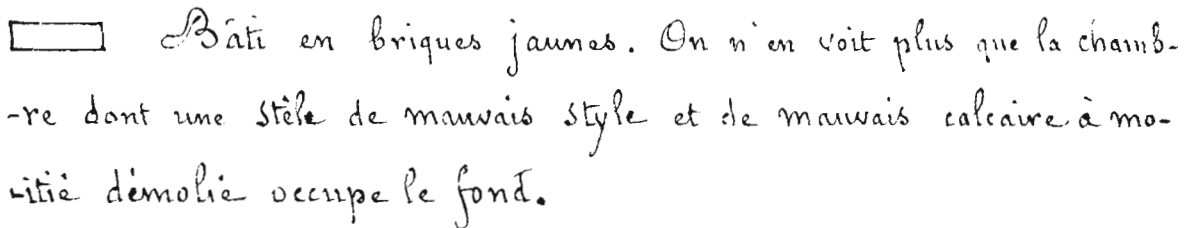 Bâti en briques jaunes. On n'en voit plus que la chamb-
-re dont une stèle de mauvais style et de mauvais calcaire à mo-
-itié démolie occupe le fond.